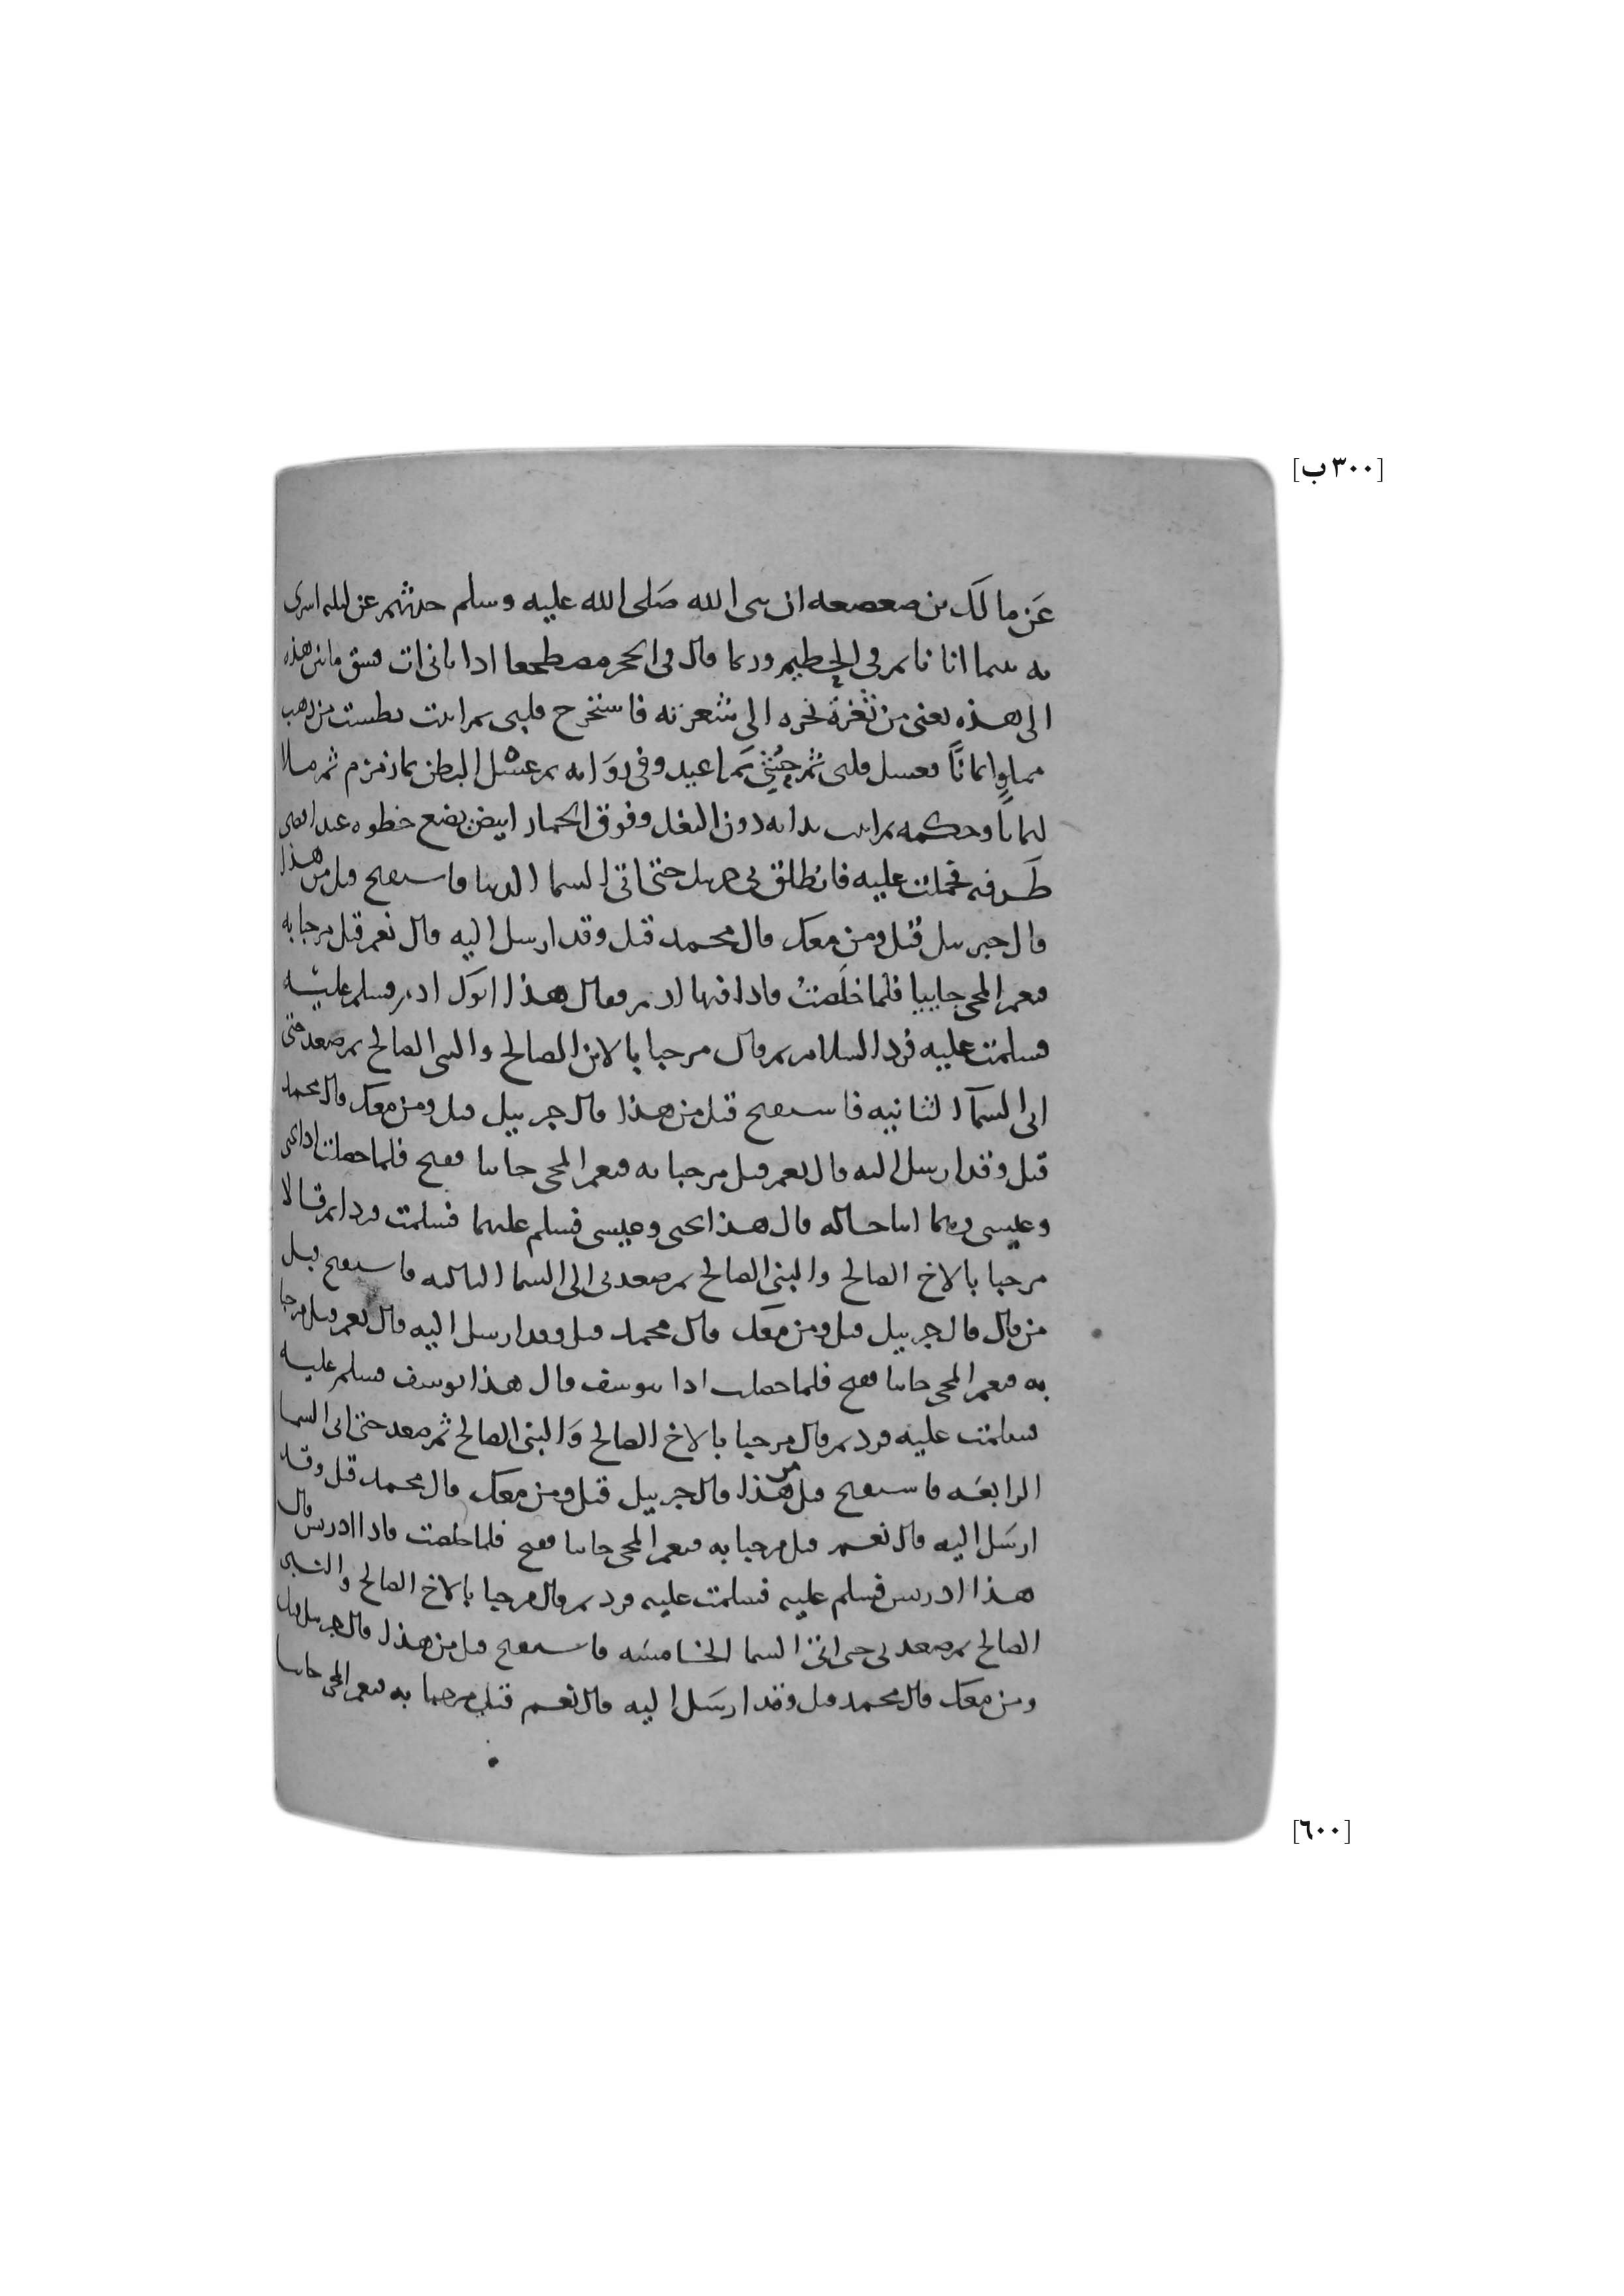 [٣٠٠ ب]
عَن مالك بن صعصعه ان نبي الله صَلى الله عليه وسلم حدثهم عن ليله اسرى
به بينما انا نايم في الحطيم وربما قال في الحجر مضطجعا اذا اتاني ات فشق ما بين هذه
الى هذه يعني من ثغرة نحره الى شعرته فاستخرج قلبي ثم اتيت بطست من ذهب
مملوٍ ايمانًا فغسل قلبي ثم حُشِيَ ثم اعيد وفي روَايه ثم غسل البطن بما زمزم ثم ملا
ايمانًا وحكمه ثم اتيت بدابه دون البغل وفوق الحمار ابيض يضع خطوه عند اقصى
طَرفه فحملت عليه فانطلق بي جبريل حتى اتى السما الدنيا فاستفتح قيل من هذا
قال جبريل قيل ومن معك قال محمد قيل وقد ارسل اليه قال نعم قيل مرحبا به
فنعم المجي جا ففتح فلما خلَصتُ فاذا فيها ادم فقال هذا ابوك ادم فسلم عليه
فسلمت عليه فرد السلام ثم قال مرحبا بالابن الصالح والنبي الصالح ثم صعد حتى
اتى السمآ الثانيه فاستفتح قيل من هذا قال جبريل قيل ومن معك قال محمد
قيل وقد ارسل اليه قال نعم قيل مرحبا به فنعم المجي جا ففتح فلما خلصت اذا يحيى
وعيسى وهما ابنا خاله قال هذا يحيى وعيسى فسلم عليهما فسلمت فردا ثم قالا
مرحبا بالاخ الصالح والنبي الصالح ثم صعد بي الى السما الثالثه فاستفتح قيل
من قال قال جبريل قيل ومن معك قال محمد قيل وقد ارسل اليه قال نعم قيل مرحبا
به فنعم المجي جا ففتح فلما خلصت اذا يوسف قال هذا يوسف فسلم عليه
فسلمت عليه فرد ثم قال مرحبا بالاخ الصالح وَالنبي الصالح ثم صعد حتى اتى السما
الرابعَه فاستفتح قيل من هذا قال جبريل قيل ومن معك قال محمد قيل وقد
ارسَل اليه قال نعم قيل مرحبا به فنعم المجي جا ففتح فلما خلصت فاذا ادريس قال
هذا ادريس فسلم عليه فسلمت عليه فرد ثم قال مرحبا بالاخ الصالح والنبي
الصالح ثم صعد بي حتى اتى السما الخامسَه فاستفتح قيل من هذا قال جبريل قيل
ومن معك قال محمد قيل وقد ارسَل اليه قال نعم قيل مرحبا به فنعم المجي جا
[٦٠٠]